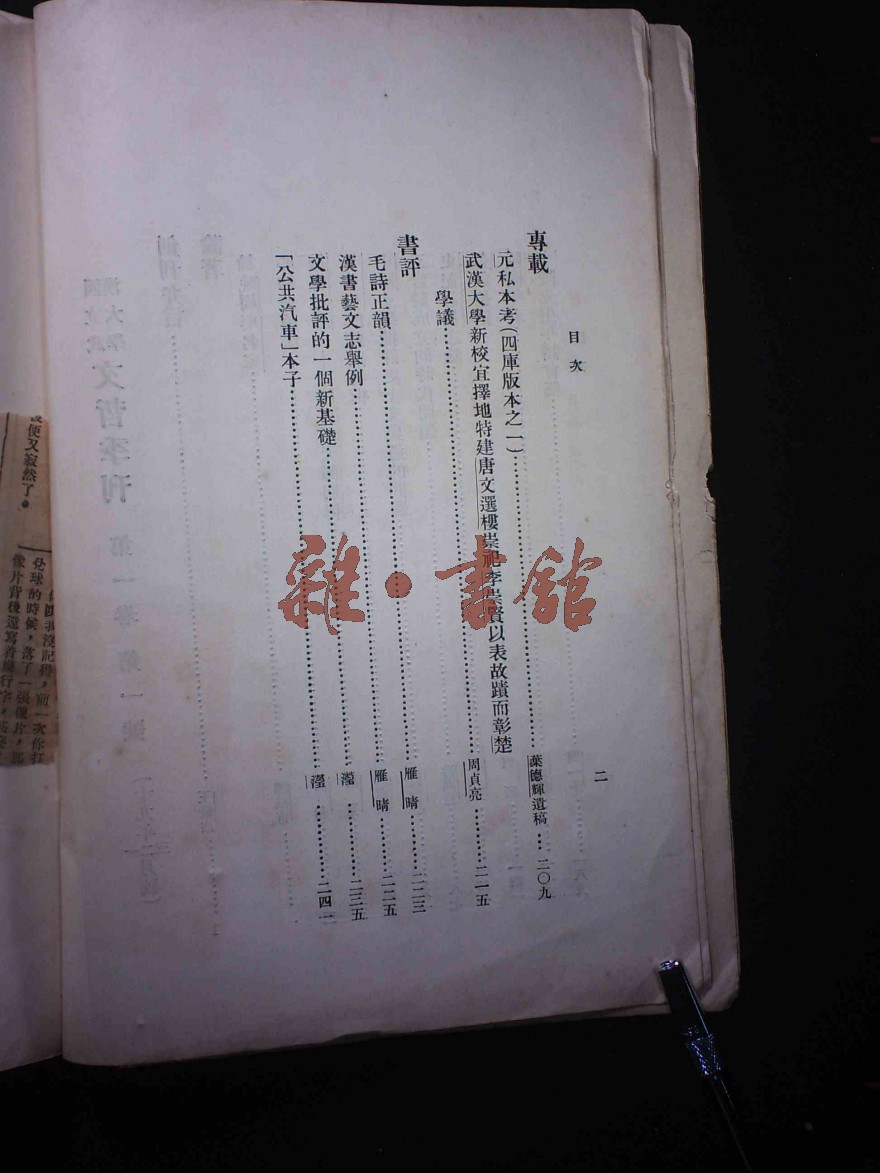 目次 二
專載
元私本考(四庫版本之一)……葉德輝遺稿……二〇九
武漢大學新校宜擇地特建唐文選樓崇祀李崇賢以表故蹟而彰楚
學議……周貞亮……二一五
書評
毛詩正韻……雁晴……二二三
漢書藝文志舉例……雁晴……二二五
文學批評的一個新基礎……瀅……二三五
「公共汽車」本子……瀅……二四一
雜·書館
便又寂然了。
球的時候,落了一張像片,
像片背後還寫着幾行字,